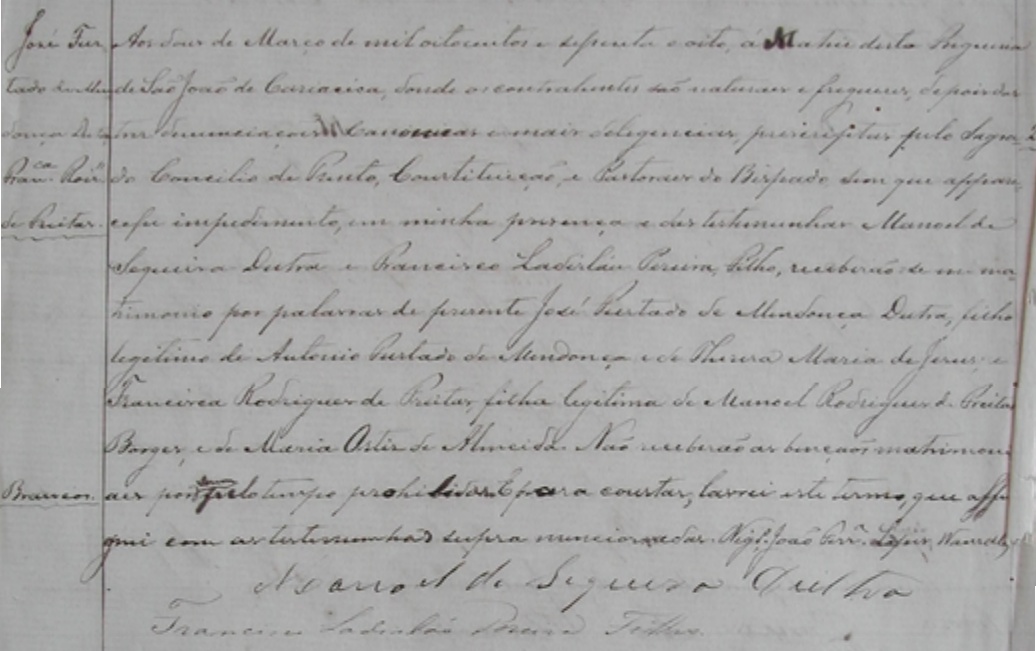 José Fur
tado de Men
donça Dutra
Fran.ca Roiz
de Freitas.
Brancos.
Aos dous de Março de mil oitocentos e sessenta e oito, a Matriz desta Freguesia
de São João de Cariacica, donde os contrahentes são naturaes e freguezes, depois das
tres denunciações Canonicas e mais deligencias, prescriptas pelo Sagra
do Concilio de Trento, Constituição, e Pastoraes do Bispado, sem que appare
cesse impedimento, em minha presença e das testemunhas Manoel de
Sequeira Dutra e Francisco Ladisláu Pereira, Filho, receberão-se em ma
trimonio por palavras de presente José Furtado de Mendonça Dutra, filho
legitimo de Antonio Furtado de Mendonça e de Thereza Maria de Jesus; e
Francisca Rodrigues de Freitas, filha legitima de Manoel Rodrigues de Freitas
Borges, e de Maria Ortiz de Almeida. Não receberão as bençãos matrimoni
aes por pelo tempo prohibidas. E para constar, lavrei este termo, que assi
gnei com as testemunhas supra mencionadas. Vigr.º João Ferr.ª Lopes
Manoel de Sequeira Dultra
Francisco Ladisláo Pereira Filho.